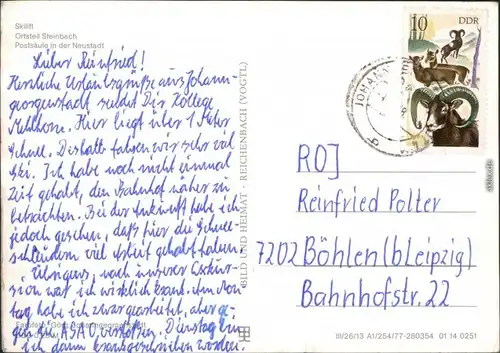 Skilift
Ortsteil Steinbach
Postsäule in der Neustadt
Lieber Reinfried!
Herzliche Urlaubsgrüße aus Johann-
georgenstadt sendet Dir Kollege
Mehlhorn. Hier liegt über 1 Meter
Schnee. Deshalb fahren wir sehr viel
Ski. Ich habe noch nicht einmal
Zeit gehabt, den Bahnhof näher zu
betrachten. Bei der Ankunft habe ich
jedoch gesehen, daß hier die Schnee-
schleudern viel Arbeit gehabt haben.
Übrigens, nach unserer Exkur-
sion war ich wirklich krank. Am Mon-
tag habe ich zwar gearbeitet, aber ge-
gen die ASAO verstoßen. Dienstag bin
ich dann krankgeschrieben worden.
BILD UND HEIMAT · REICHENBACH (VOGTL)
10 DDR
JOHANN
ROJ
Reinfried Polter
7202 Böhlen (b Leipzig)
Bahnhofstr. 22
III/26/13 A1/254/77-280354 01 14 0251